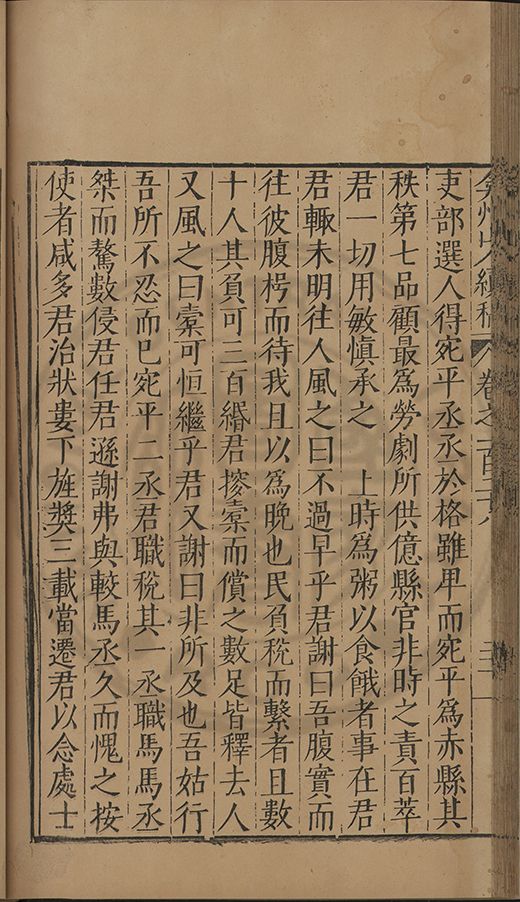 弇州山人續稿 卷之一百二十八
吏部選人得宛平丞丞於格雖卑而宛平爲赤縣其
秩第七品顧最爲勞劇所供億縣官非時之責百萃
君一切用敏愼承之 上時爲粥以食餓者事在君
君輙未明往人風之曰不過早乎君謝曰吾腹實而
往彼腹枵而待我且以爲晚也民負稅而繫者且數
十人其負可三百緡君摉橐而償之數足皆釋去人
又風之曰橐可恒繼乎君又謝曰非所及也吾姑行
吾所不忍而已宛平二丞君職稅其一丞職馬馬丞
桀而驁數侵君任君遜謝弗與較馬丞久而愧之按
使者咸多君治狀婁下旌奬三載當遷君以念處士